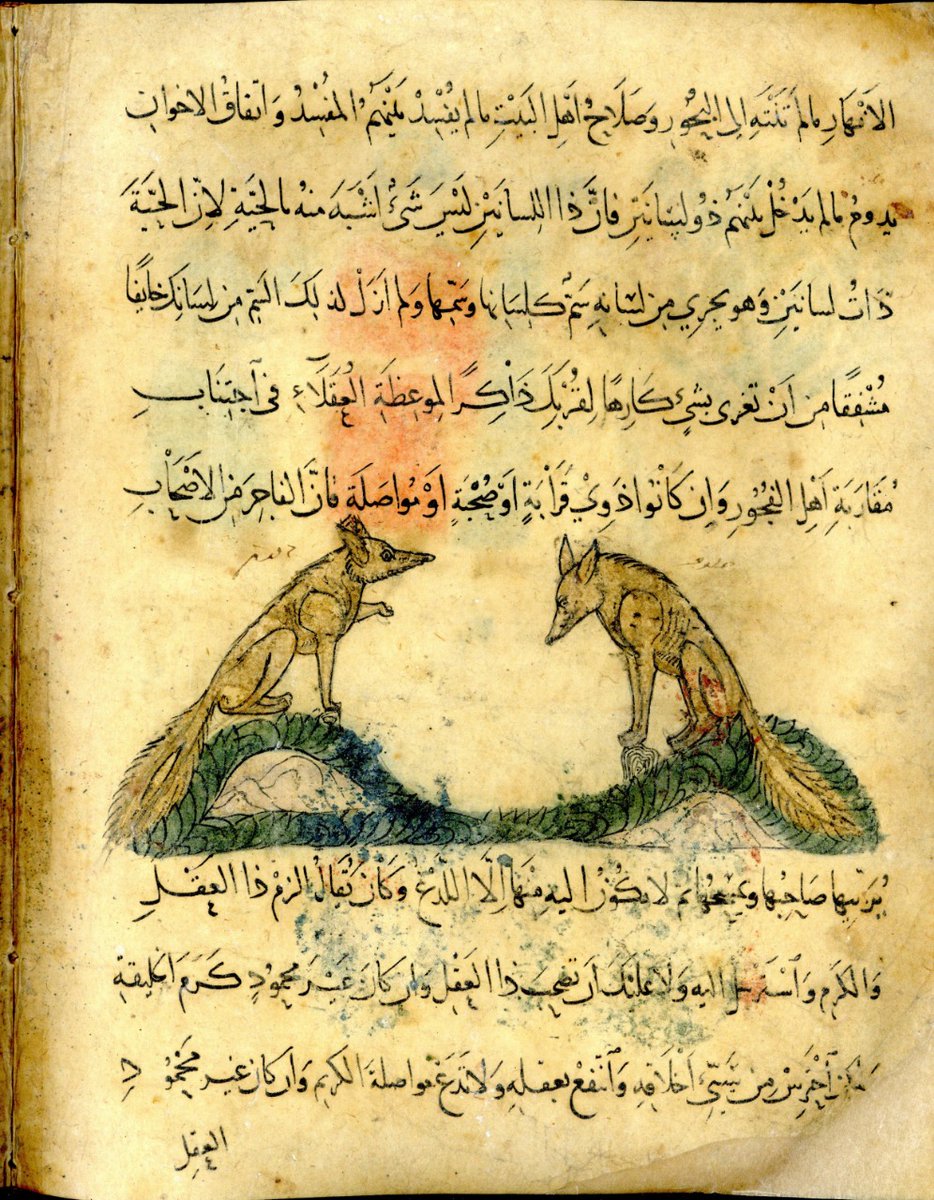 الاَنْهَارِ مالم تَنْتَهِ الى البُحُورِ وَصَلَاحُ اَهْلِ البَيْتِ مالم يفُسِدْ بَيْنَهُمُ المفُسِدُ وَ اتفاقُ الاخوان
يدومُ مالم يَدْخُلْ بَيْنَهُم ذُو لِسَانَيْنِ فانَّ ذا اللسانَيْنِ لَيْسَ شَىْءٌ اَشْبَهَ منهُ بالحيَّةِ لانّ الحَيَّةَ
ذَاتُ لسانَيْنِ وَهو يجري مِن لسَانِهِ سَمٌّ كلسَانِها وسَمِّها وَلم ازَلْ لذلكَ السَّمِّ مِن لسَانِكَ خايفًا
مُشْفِقًا مِن اَنْ تغرى بشىءٍ كارهًا لقُرْبِكَ ذَاكِرًا لموعظَةِ العُقَلَآءِ فى اَجتِنَابِ
مُقَارَبَةِ اَهْلِ الفُجُورِ وَاِن كَانُوا ذَوِيْ قُرَابَةٍ اَوْ صُحْبَةٍ اَوْ مُواصَلَةٍ فانَّ الفاجرَ مِنَ الاَصْحَابِ
يُرَبِّيها صَاحِبُها ويمسَحُها ثم لا يكُوْنُ اليهِ مِنْهَا اِلَّا اللدْغُ وَكَانَ يُقَالُ الزمْ ذَا العَقْلِ
وَالكَرَمِ وَاَسْتَرسِل اليهِ وَلا عليْكَ اَن تصْحَبَ ذَا العَقْلِ وَاِن كَانَ غَيْرَ محَمُودٍ كَرَمَ الخَليقَةِ
اَحْتَرِسْ مِنْ سَيِّئِ اَخْلَاقِهِ وَاَنْتَفِعْ بعَقلِهِ وَلَا تَدَعْ مُواصَلَةَ الكَريمِ وَاِن كَانَ غيرَ مَحْمُودِ
العقل